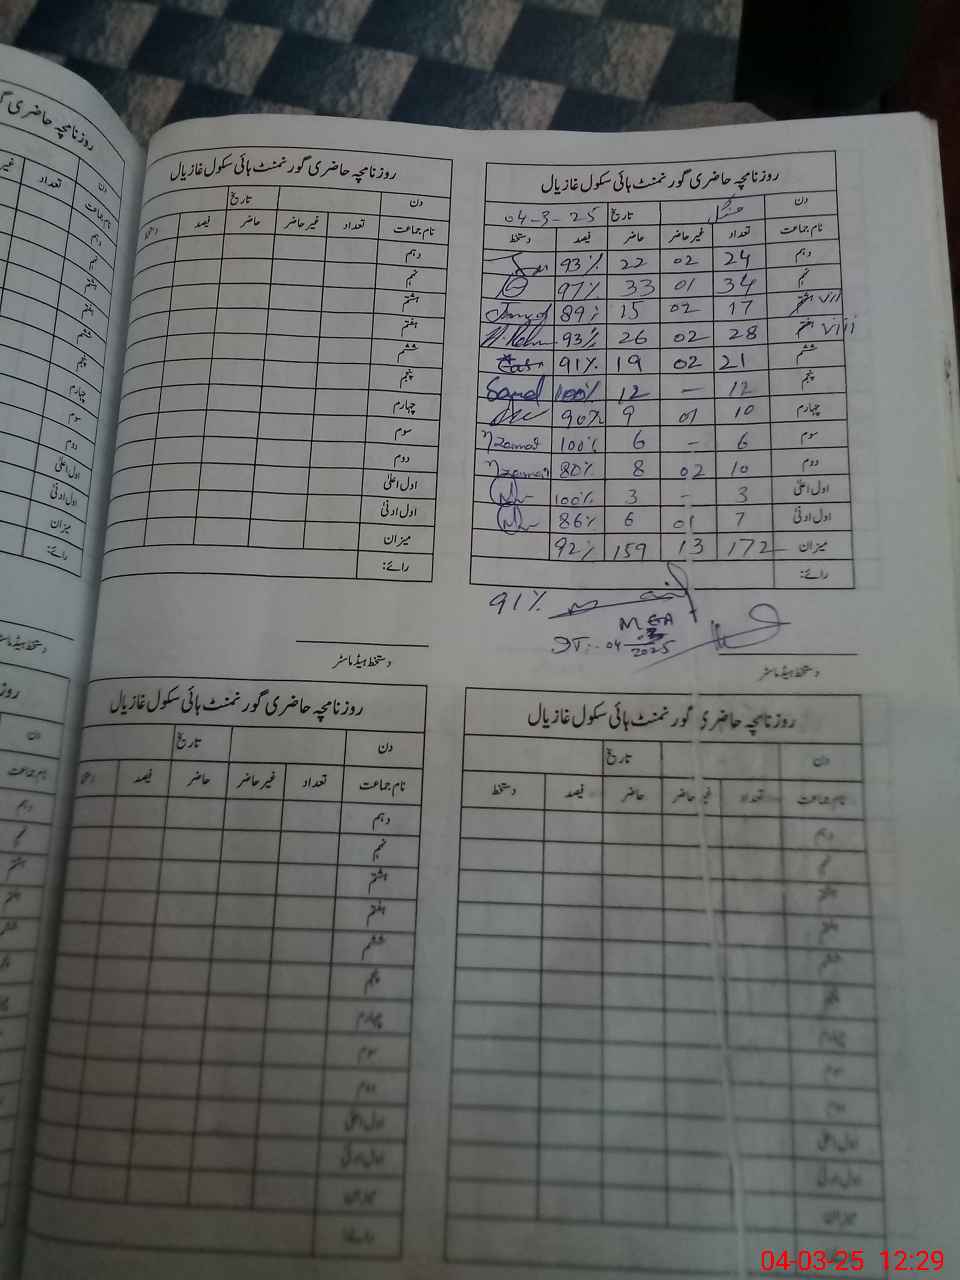 روزنامچہ حاضری گورنمنٹ ہائی سکول غازیال
دن منگل تاریخ 04-3-25
نام جماعت تعداد غیر حاضر حاضر فیصد دستخط
دہم 24 02 22 93%
نہم 34 01 33 97%
ہشتم vii 17 02 15 89%
ہفتم viii 28 02 26 93%
ششم 21 02 19 91%
پنجم 12 – 12 100%
چہارم 10 01 9 90%
سوم 6 – 6 100%
دوم 10 02 8 80%
اول اعلیٰ 3 – 3 100%
اول ادنیٰ 7 01 6 86%
میزان 172 13 159 92%
رائے:
91%
MEA
DT:- 04-03-2025
دستخط ہیڈ ماسٹر
روزنامچہ حاضری گورنمنٹ ہائی سکول غازیال
دن تاریخ
نام جماعت تعداد غیر حاضر حاضر فیصد
دہم
نہم
ہشتم
ہفتم
ششم
پنجم
چہارم
سوم
دوم
اول اعلیٰ
اول ادنیٰ
میزان
رائے:
دستخط ہیڈ ماسٹر
دن
نام جماعت تعداد
دہم
نہم
ہشتم
ہفتم
ششم
پنجم
چہارم
سوم
دوم
اول اعلیٰ
اول ادنیٰ
میزان
رائے:
روزنامچہ حاضری گورنمنٹ ہائی سکول غازیال
دن تاریخ
نام جماعت تعداد غیر حاضر حاضر فیصد دستخط
دہم
نہم
ہشتم
ہفتم
ششم
پنجم
چہارم
سوم
دوم
اول اعلیٰ
اول ادنیٰ
میزان
روزنامچہ حاضری گورنمنٹ ہائی سکول غازیال
دن تاریخ
نام جماعت تعداد غیر حاضر حاضر فیصد
دہم
نہم
ہشتم
ہفتم
ششم
پنجم
چہارم
سوم
دوم
اول اعلیٰ
اول ادنیٰ
میزان
رائے:
04-03-25 12:29